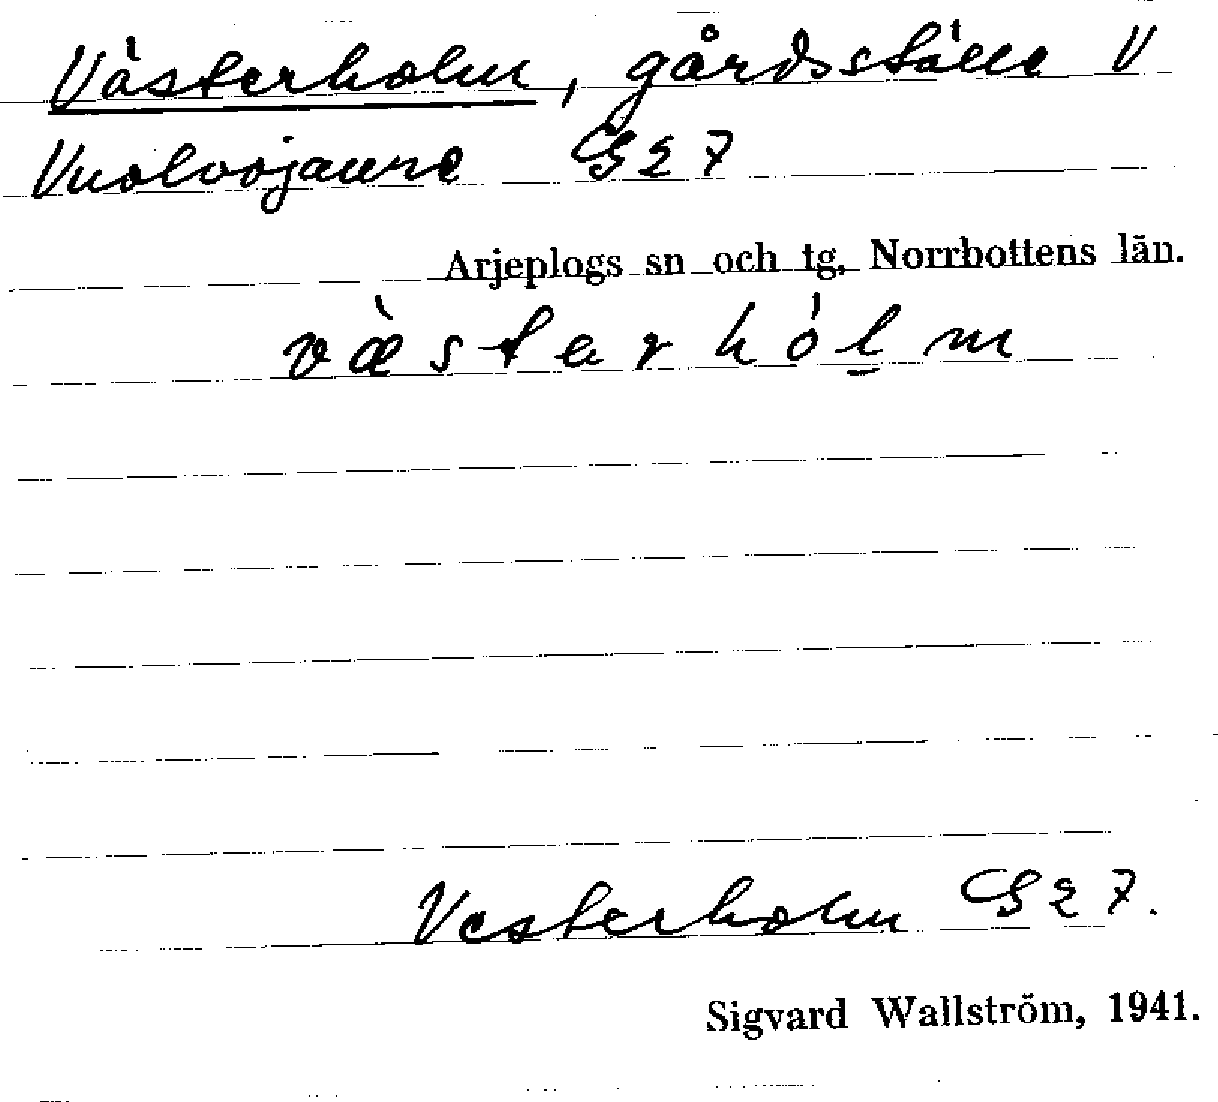 Västerholm, gårdsställe V
Vuolvojaure G 27
Arjeplogs sn och tg, Norrbottens län.
væ̀stərhól̲m
Vesterholm G 27.
Sigvard Wallström, 1941.